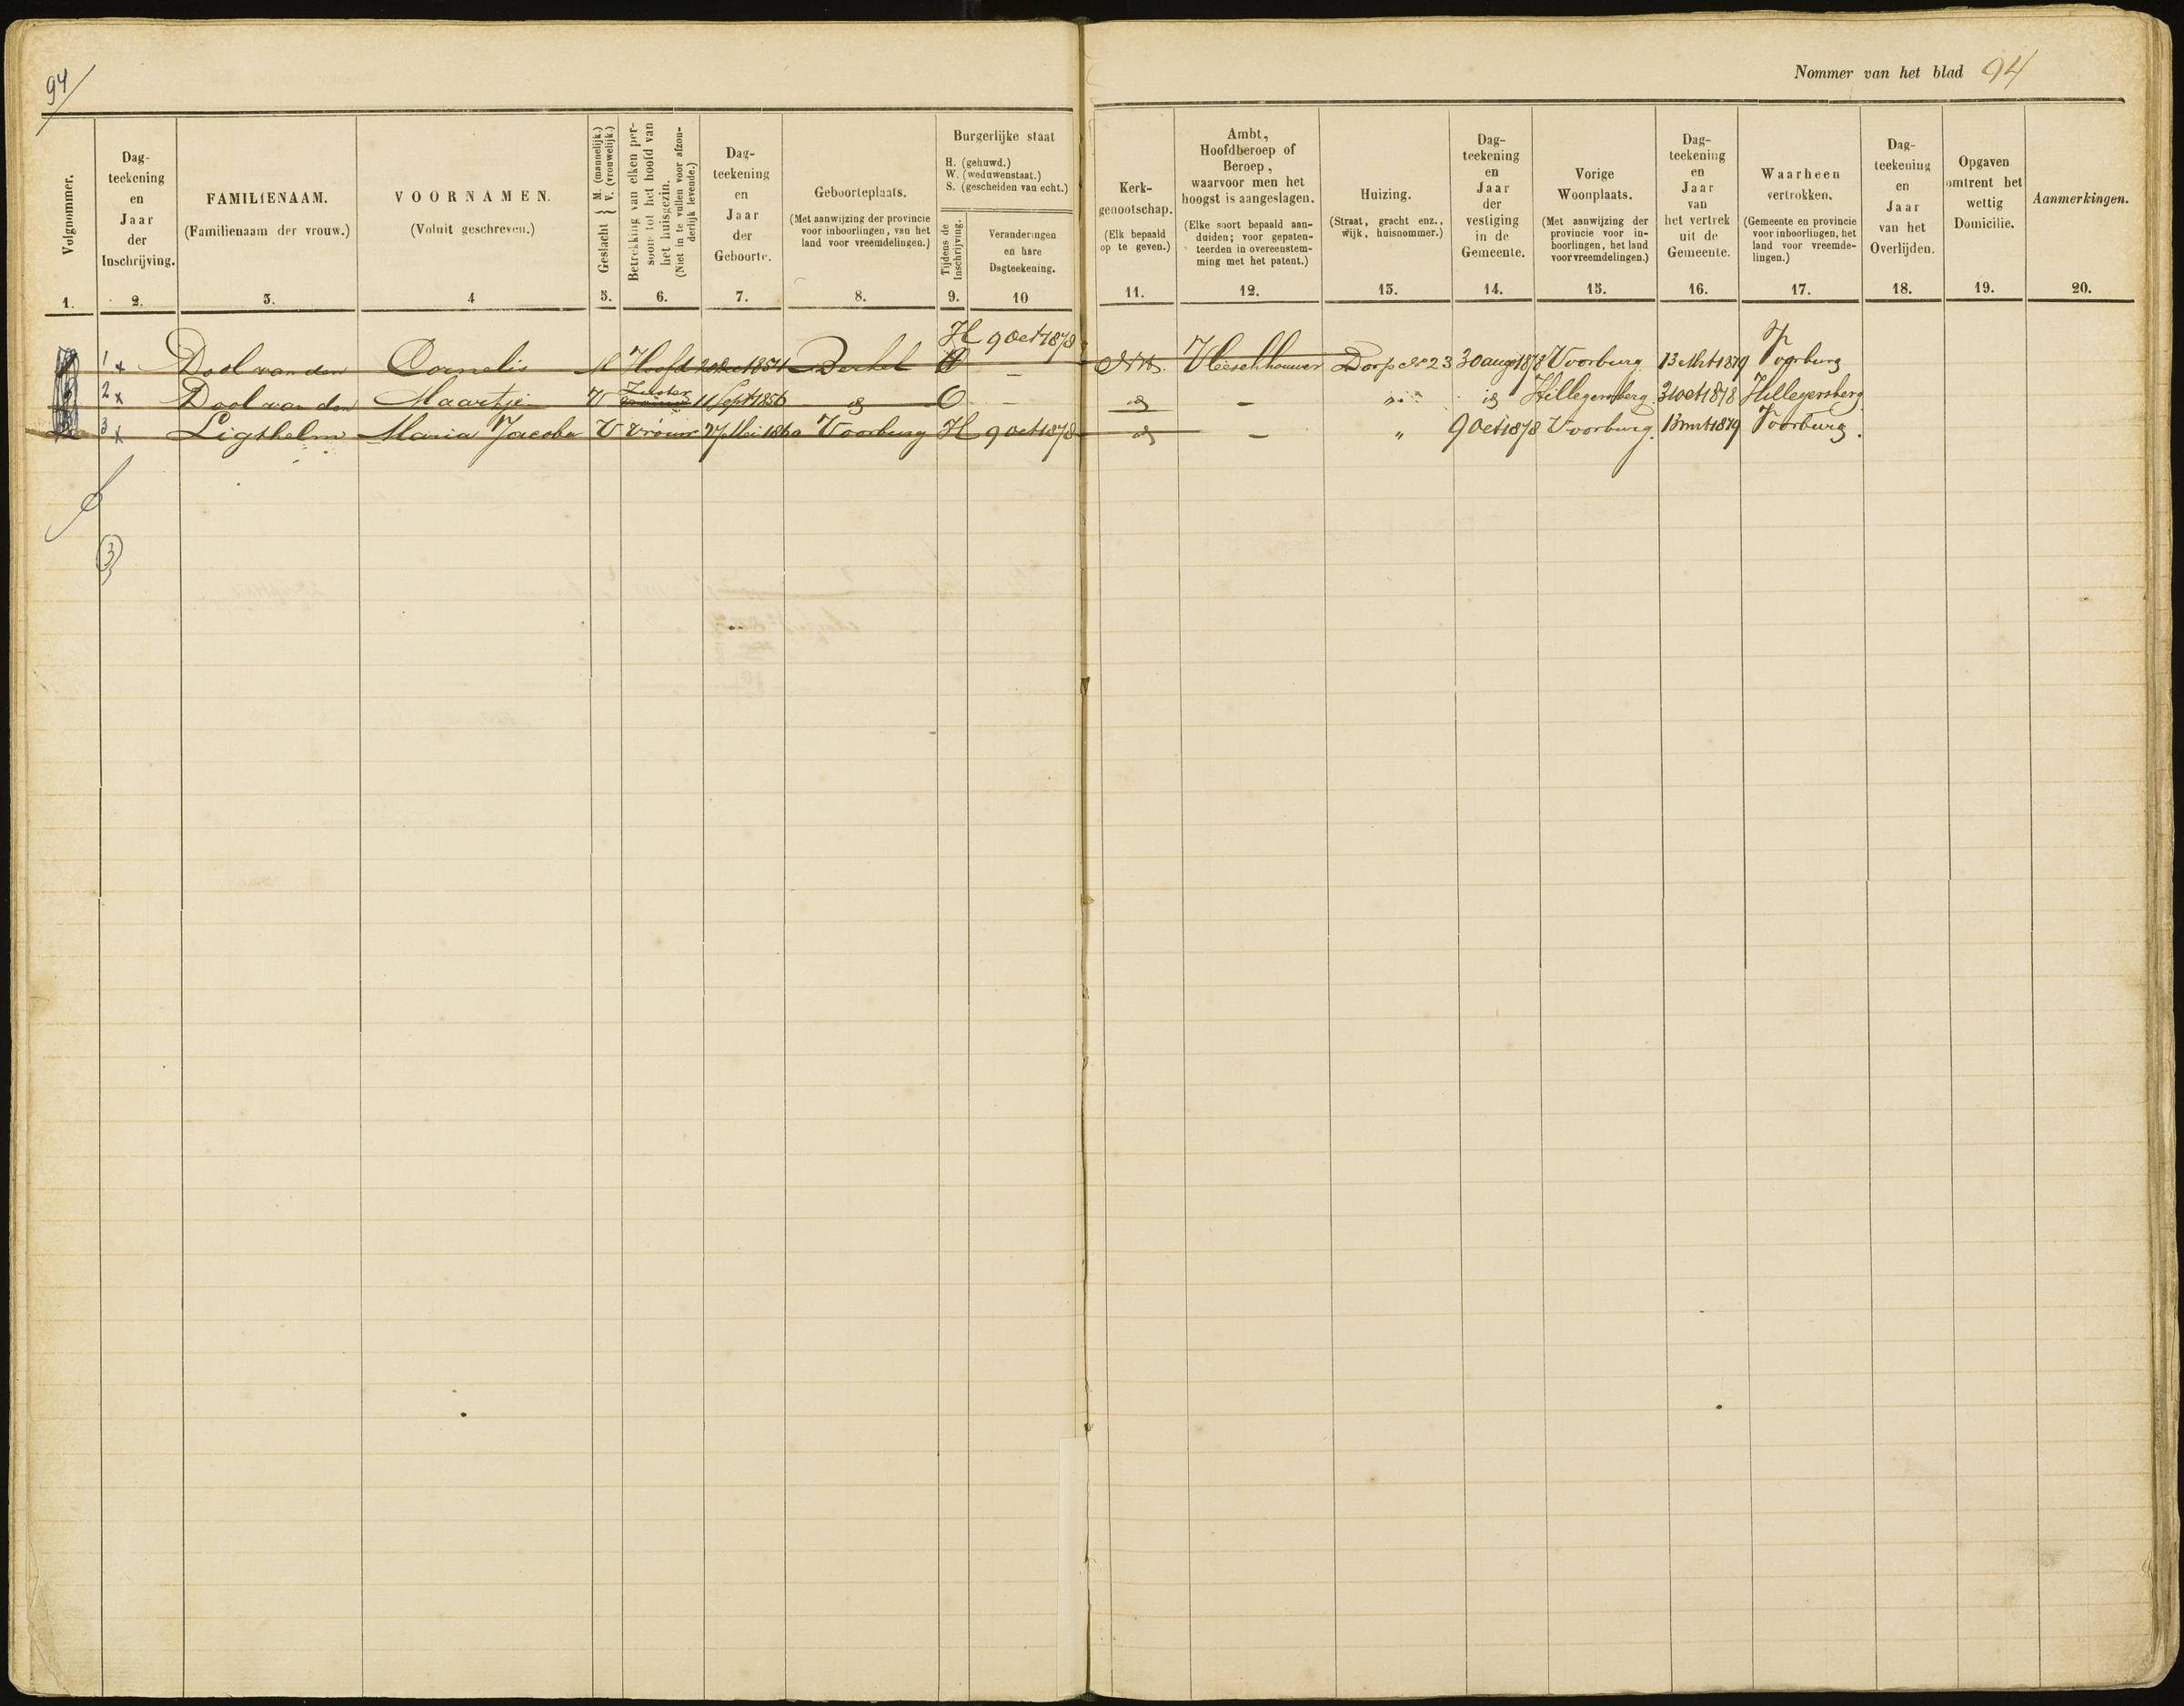 94
Nommer van het blad 94
Volgnommer.
1.
Dag-
teekening
en
Jaar
der
Inschrijving.
2.
FAMILIENAAM.
(Familienaam der vrouw.)
3.
VOORNAMEN.
(Voluit geschreven.)
4
Geslacht } M. (mannelijk.)
V. (vrouwelijk.)
5.
Betrekking van elken per-
soon tot het hoofd van
het huisgezin.
(Niet in te vullen voor afzon-
derlijk levende.)
6.
Dag-
teekening
en
Jaar
der
Geboorte.
7.
Geboorteplaats.
(Met aanwijzing der provincie
voor inboorlingen, van het
land voor vreemdelingen.)
8.
Burgerlijke staat
H. (gehuwd.)
W. (weduwenstaat.)
S. (gescheiden van echt.)
Tijdens de
Inschrijving.
9.
Veranderingen
en hare
Dagteekening.
10
Kerk-
genootschap.
(Elk bepaald
op te geven.)
11.
Ambt,
Hoofdberoep of
Beroep,
waarvoor men het
hoogst is aangeslagen.
(Elke soort bepaald aan-
duiden; voor gepaten-
teerden in overeenstem-
ming met het patent.)
12.
Huizing.
(Straat, gracht enz.,
wijk, huisnommer.)
13.
Dag-
teekening
en
Jaar
der
vestiging
in de
Gemeente.
14.
Vorige
Woonplaats.
(Met aanwijzing der
provincie voor in-
boorlingen, het land
voor vreemdelingen.)
15.
Dag-
teekening
en
Jaar
van
het vertrek
uit de
Gemeente.
16.
Waarheen
vertrokken.
(Gemeente en provincie
voor inboorlingen, het
land voor vreemde-
lingen.)
17.
Dag-
teekening
en
Jaar
van het
Overlijden.
18.
Opgaven
omtrent het
wettig
Domicilie.
19.
Aanmerkingen.
20.
H 9 Oct 1878
1 x Dool van den Cornelis M Hoofd 1854 Berkel O — NH. Vleeschhouwer Dorp No 23 30 aug 1878 Voorburg 13 Mrt 1879 Voorburg
2 x Dool van den Maartje V Zuster vrouw 11 Sept 1856 id O — id — " id Hillegersberg 31 oct 1878 Hillegersberg
3 x Ligthelm Maria Jacoba V vrouw 27 Mei 1860 Voorburg H 9 oct 1878 id — " 9 Oct 1878 Voorburg. 13 mrt 1879 Voorburg.
3